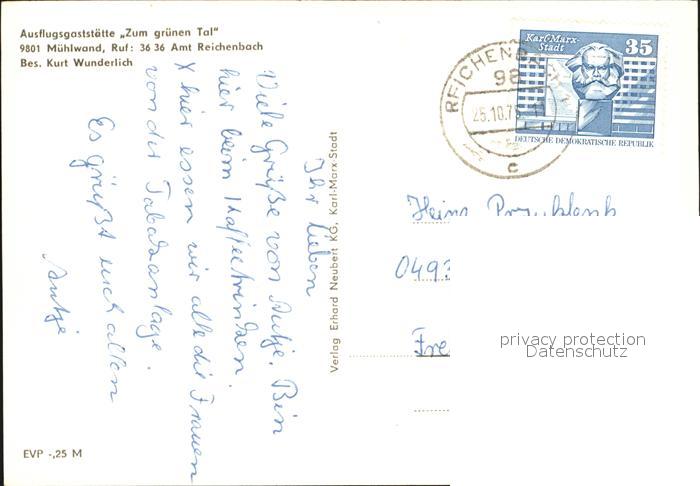 Ausflugsgaststätte „Zum grünen Tal“
9801 Mühlwand, Ruf: 36 36 Amt Reichenbach
Bes. Kurt Wunderlich
Karl-Marx-
Stadt
35
DEUTSCHE DEMOKRATISCHE REPUBLIK
REICHENB
98
25.10.7
c
Ihr Lieben
Viele Grüße von Antje. Bin
hier beim Kaffeetrinken.
X hier essen wir alle die Frauen
von der Tabakanlage.
Es grüßt euch allen
Antje
Verlag Erhard Neubert KG, Karl-Marx-Stadt
Heinz
049
Fre
privacy protection
Datenschutz
EVP -,25 M